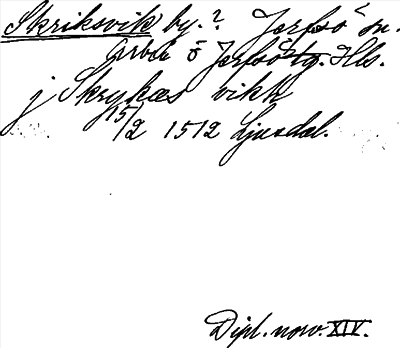 Skriksvik by.? Jerfsö sn.
Arbrå o Jerfsö tg. Hls.
j Skrykæs vikh
15/2 1512 Ljusdal.
Dipl. norv. XIV.